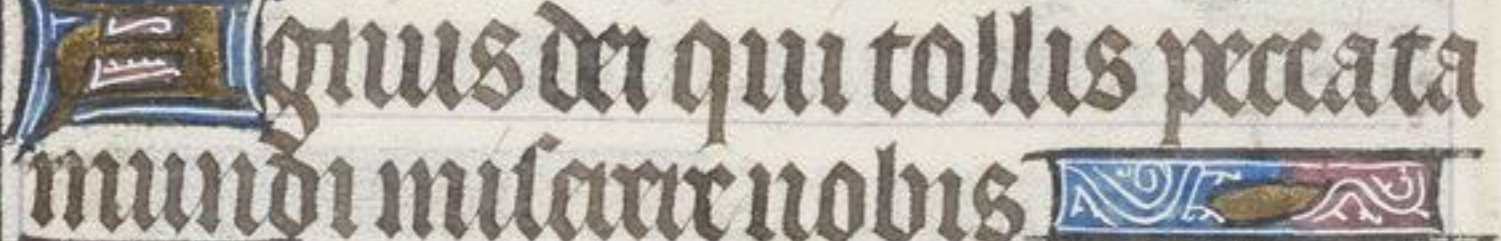 Agnus dei qui tollis peccata
mundi miserere nobis